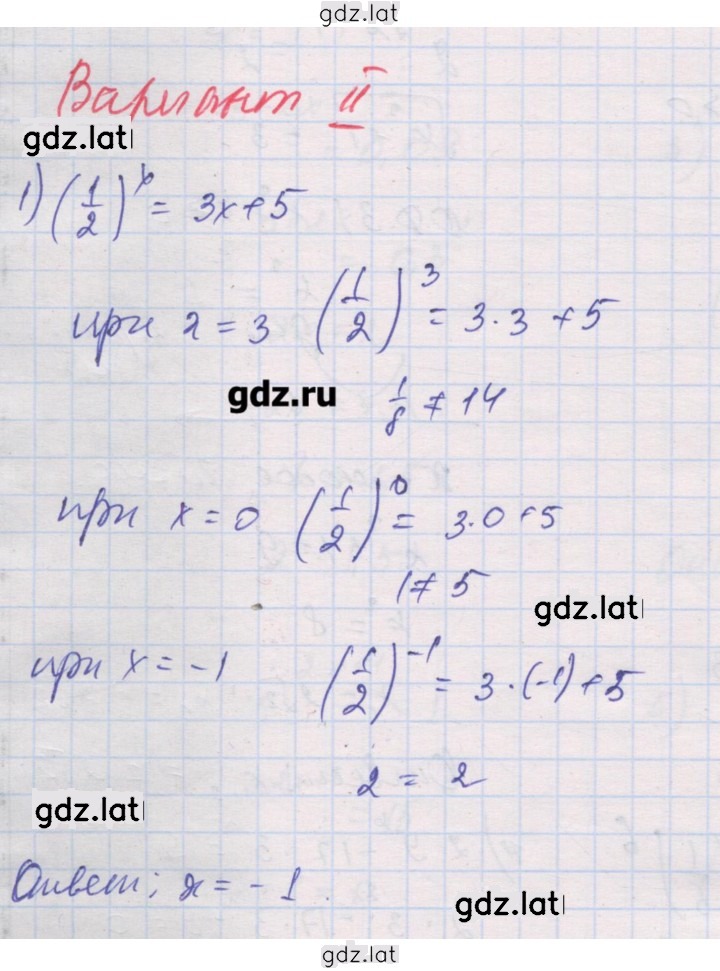 gdz.lat
Вариант II
gdz.lat
1) (1/2)^x = 3x+5
при x = 3 (1/2)^3 = 3·3+5
gdz.ru
1/8 ≠ 14
при x = 0 (1/2)^0 = 3·0+5
1 ≠ 5
gdz.lat
при x = -1 (1/2)^-1 = 3·(-1)+5
2 = 2
gdz.lat
Ответ: x = -1.
gdz.lat
gdz.lat